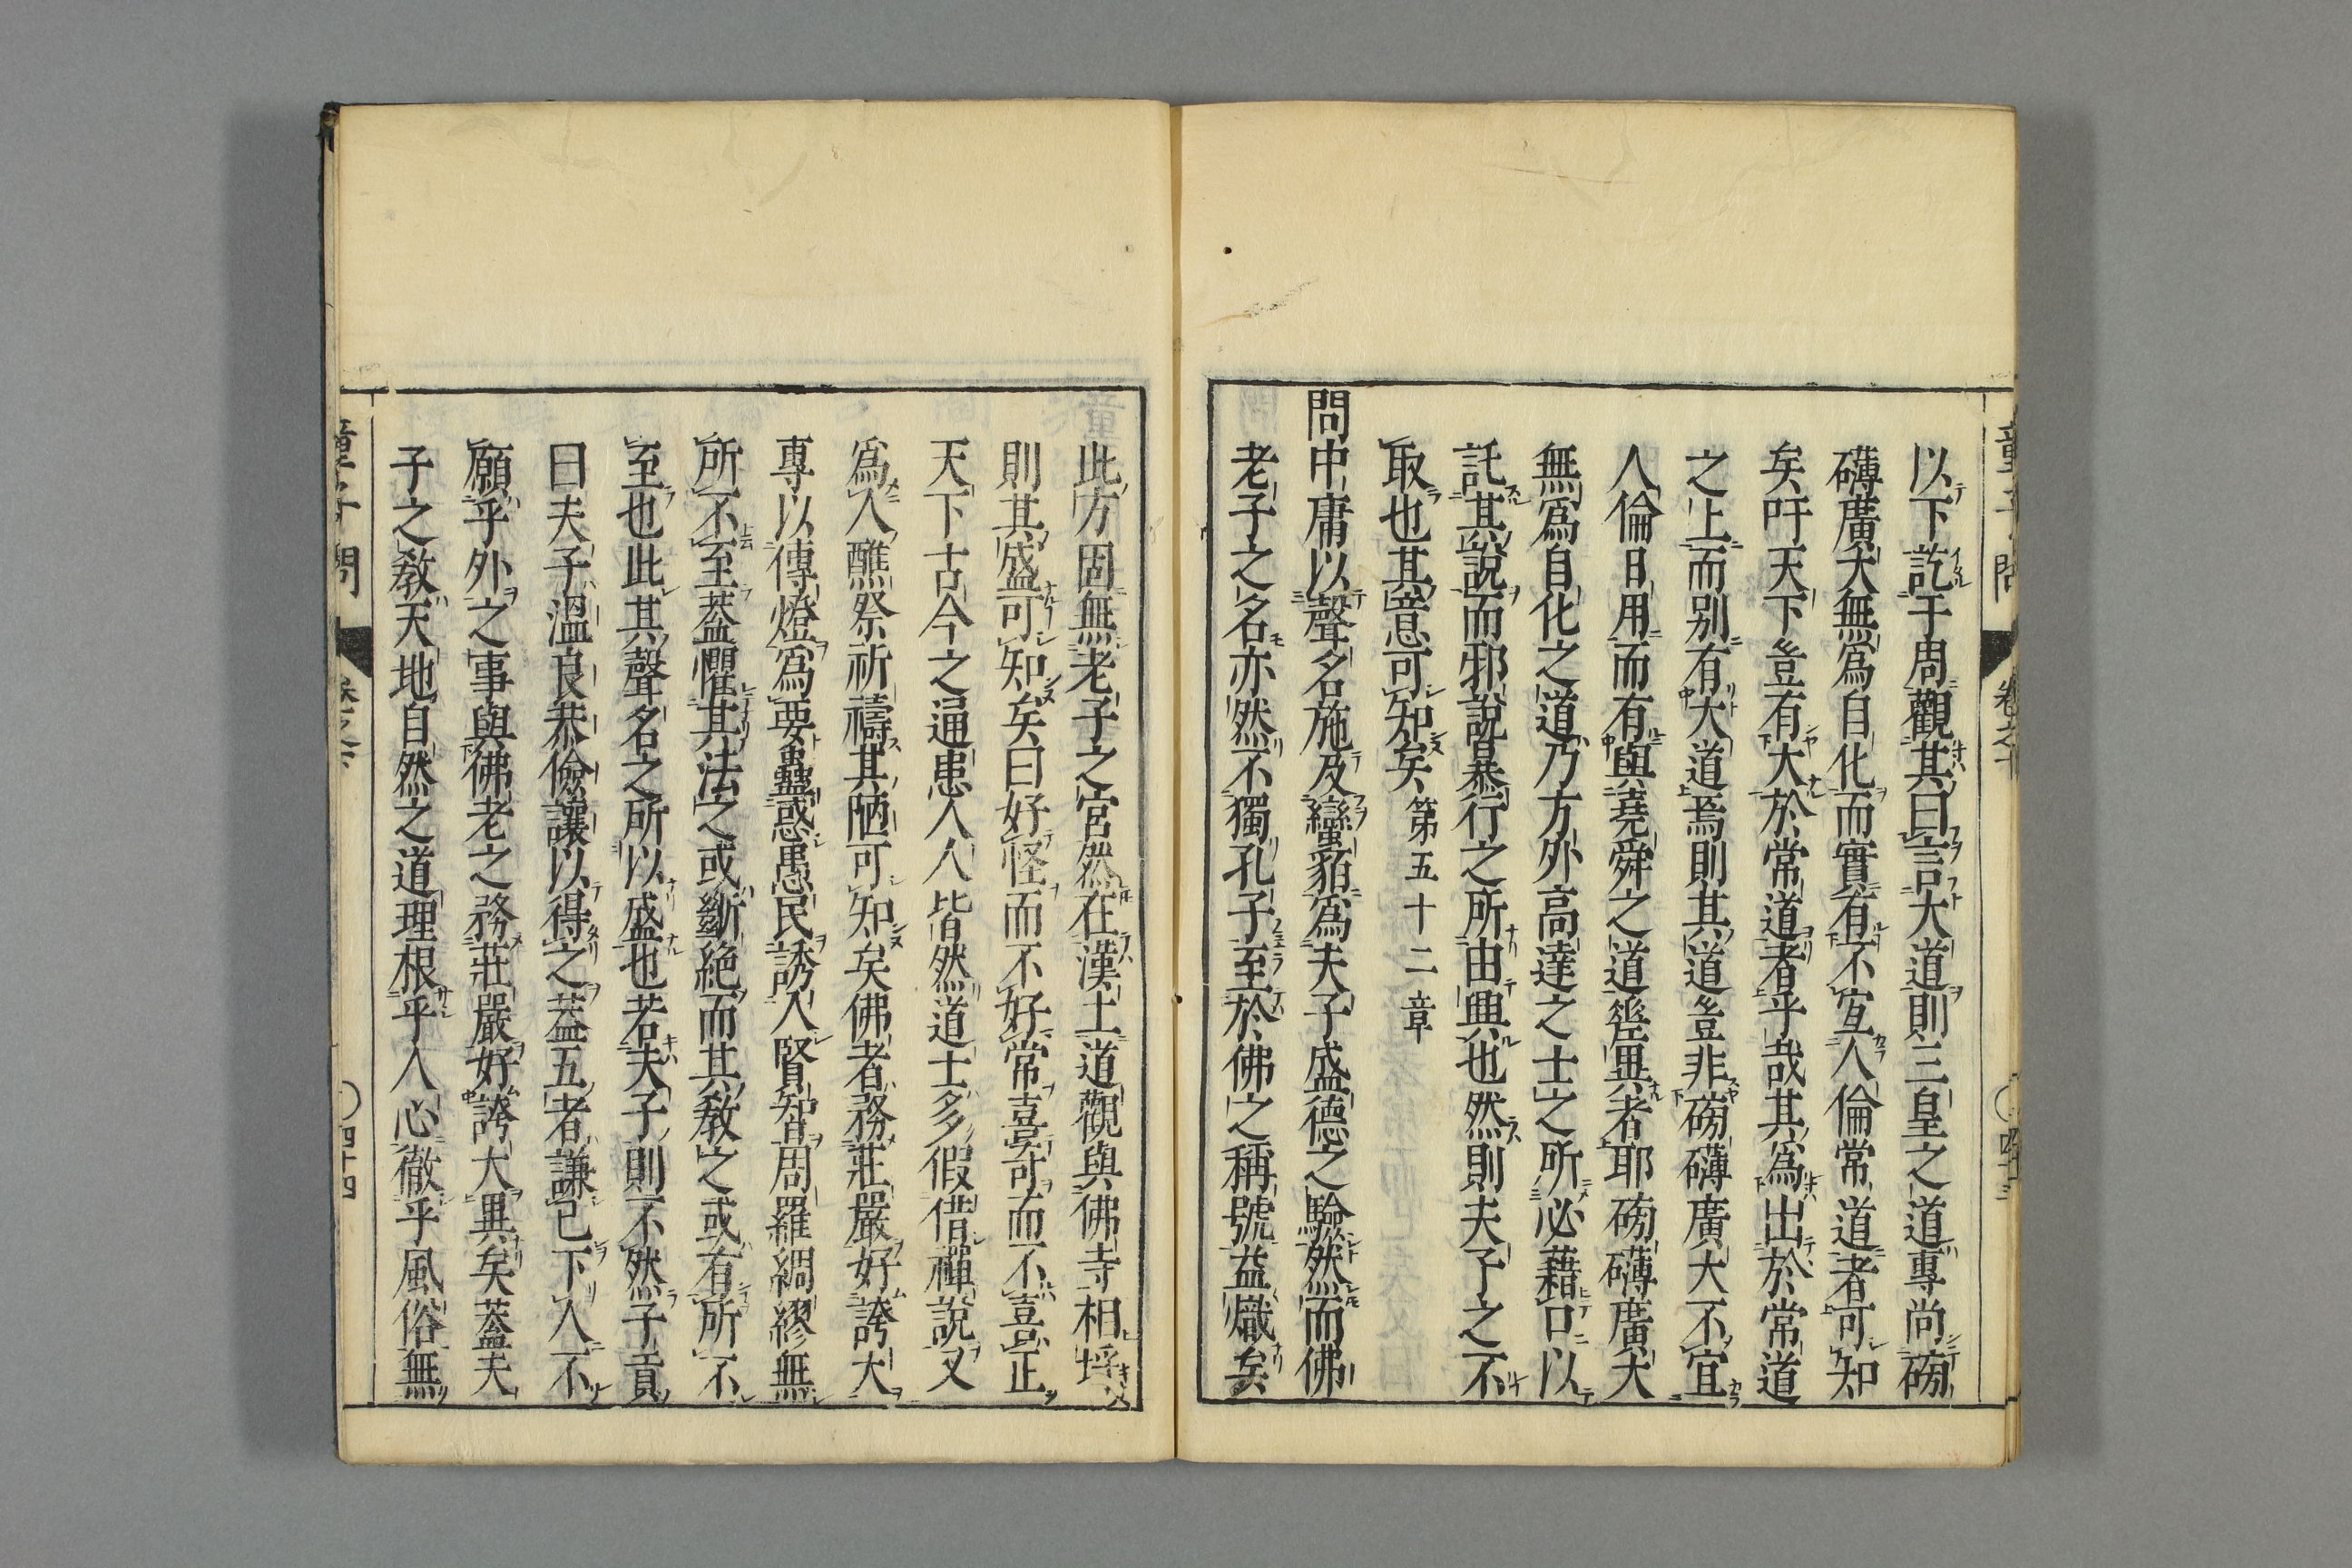 以下訖于周觀其曰言大道則三皇之道專尚磅
礴廣大無爲自化而實有不宜人倫常道者可知
矣吁天下豈有大於常道者乎哉其爲出於常道
之上而別有大道焉則其道豈非磅礴廣大不宜
人倫日用而有與堯舜之道逕異者耶磅礴廣大
無爲自化之道乃方外高達之士之所必藉口以
託其說而邪說暴行之所由興也然則夫子之不
取也其意可知矣 第五十二章
問中庸以聲名施及蠻貊爲夫子盛德之驗然而佛
老子之名亦然不獨孔子至於佛之稱號益熾矣
此方固無老子之宮然在漢土道觀與佛寺相埒
則其盛可知矣曰好怪而不好常喜可而不喜正
天下古今之通患人人皆然道士多假借禪說又
爲人醮祭祈禱其陋可知矣佛者務莊嚴好誇大
專以傳燈爲要蠱惑愚民誘人賢智周羅綢繆無
所不至蓋懼其法之或斷絕而其教之或有所不
至也此其聲名之所以盛也若夫子則不然子貢
曰夫子溫良恭儉讓以得之蓋五者謙己下人不
願乎外之事與佛老之務莊嚴好誇大異矣蓋夫
子之教天地自然之道理根乎人心徹乎風俗無
童子問 卷之下 四十四